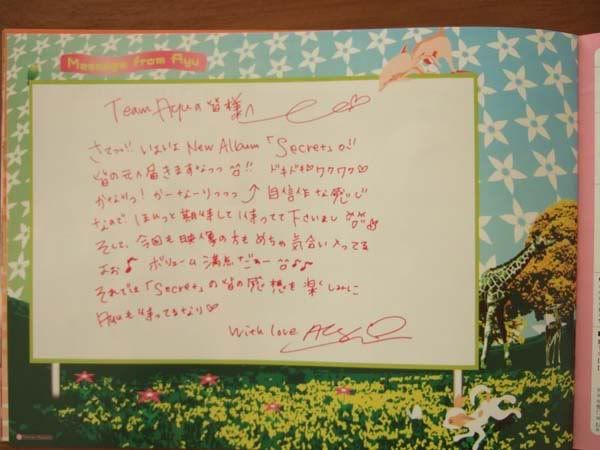 Message from Ayu
Team Ayuの皆様へ
さてっっ!! いよいよ New Album「Secret」が
皆の元へ届きますなっっ!! ドキドキ♡ワクワク♡
かなりっ! かーなーりっっっ⤴ 自信作な感じ
なので ほいっと期待して待ってて下さいまし
そして、今回も映像の方もめちゃ気合い入ってる
よぉ♪ ボリューム満点だぁー♪♪
それでは「Secret」の皆の感想を楽しみに
Ayuも待ってるなり♡
With love Ayu